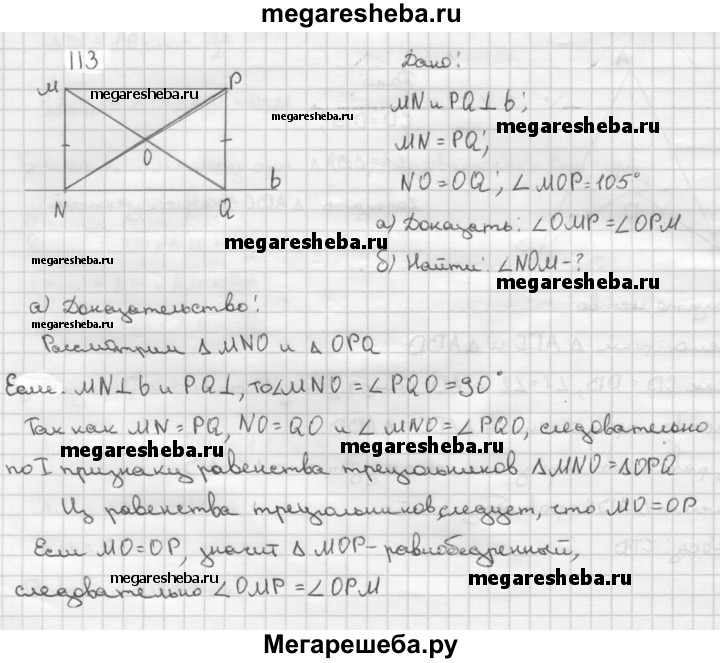 megaresheba.ru
113
Дано:
M P
megaresheba.ru
MN и PQ ⊥ b;
megaresheba.ru
megaresheba.ru
MN = PQ;
O
b
NO = OQ; ∠MOP = 105°
N Q
megaresheba.ru
а) Доказать: ∠OMP = ∠OPM
megaresheba.ru
б) Найти: ∠NOM - ?
а) Доказательство:
megaresheba.ru
Рассмотрим Δ MNO и Δ OPQ
Если MN⊥b и PQ⊥, то ∠MNO = ∠PQO = 90°
Так как MN = PQ, NO = QO и ∠MNO = ∠PQO, следовательно
megaresheba.ru megaresheba.ru
по I признаку равенства треугольников ΔMNO = ΔOPQ
Из равенства треугольников следует, что MO = OP
Если MO = OP, значит Δ MOP - равнобедренный,
megaresheba.ru megaresheba.ru
следовательно ∠OMP = ∠OPM
Мегарешеба.ру